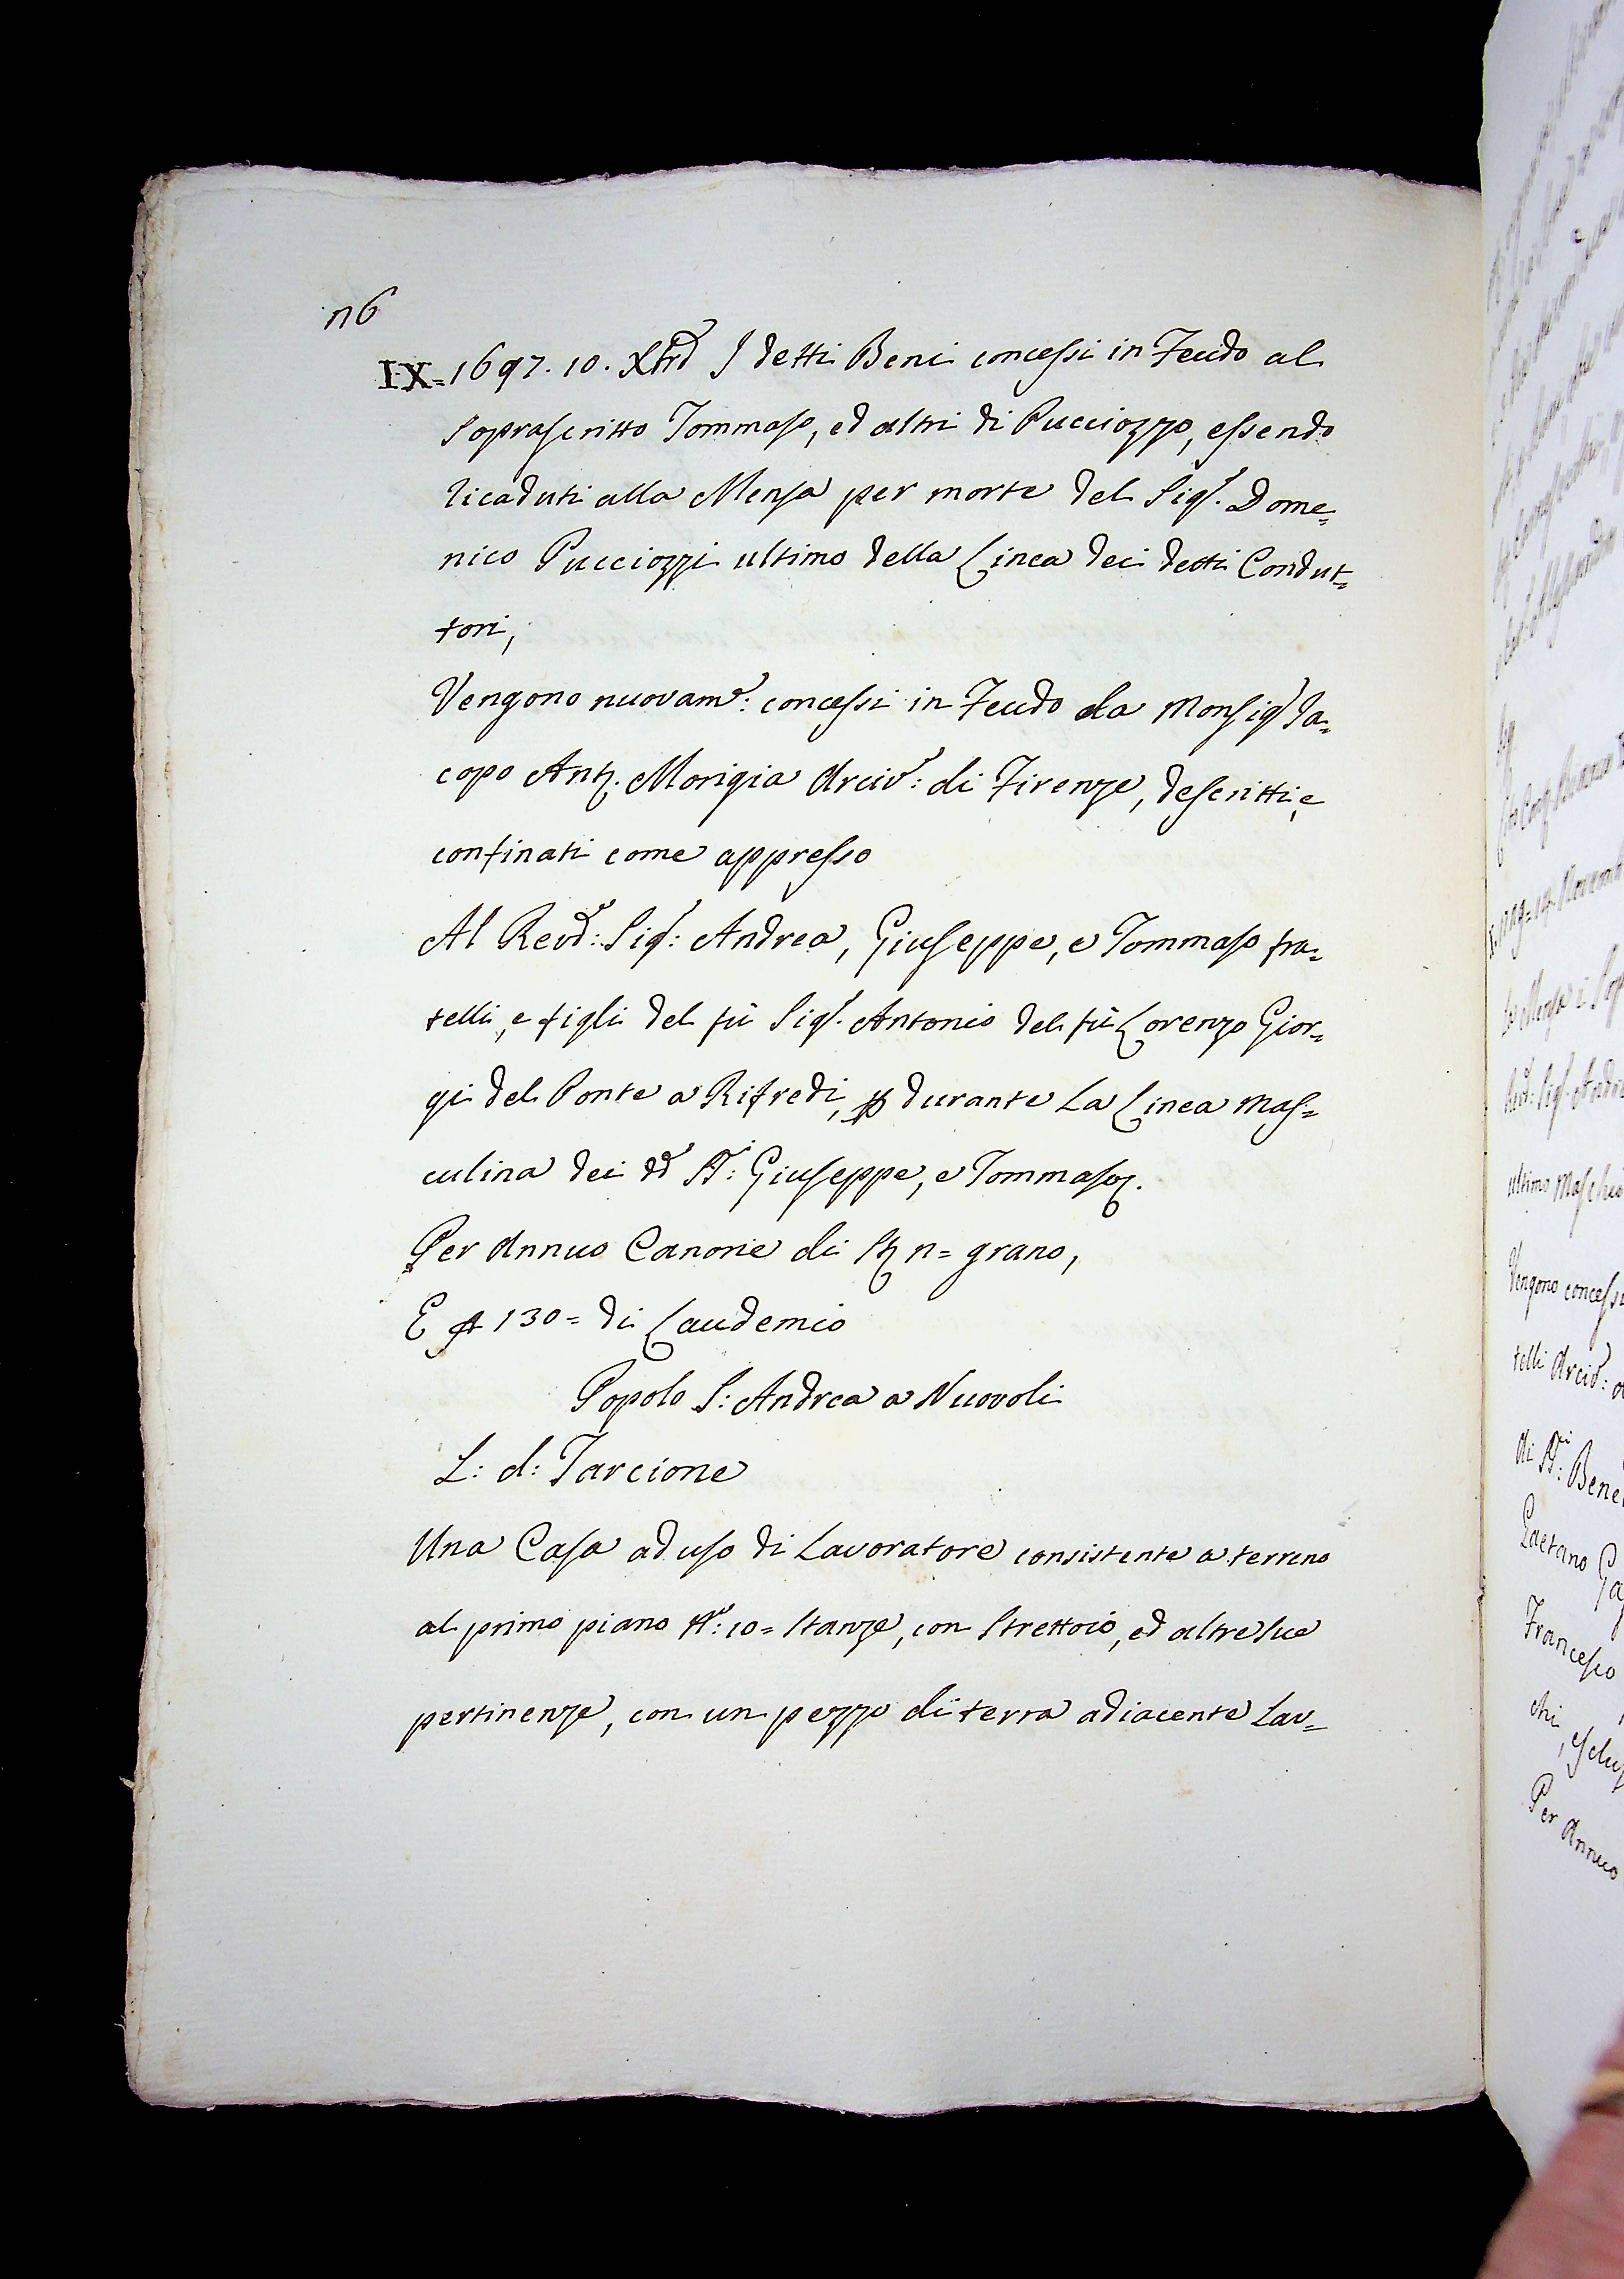 116
IX = 1697. 10. Xbre I detti Beni concessi in Feudo al
soprascritto Tommaso, ed altri di Pucciozzo, essendo
ricaduti alla Mensa per morte del Sigr. Dome=
nico Pucciozzi ultimo della Linea dei detti Condut=
tori,
Vengono nuovamte: concessi in Feudo da Monsigr Ja=
copo Anto. Morigia Arcivo: di Firenze, descritti, e
confinati come appresso
Al Revdo: Sigr: Andrea, Giuseppe, e Tommaso fra=
telli, e figli del fù Sigr. Antonio del fù Lorenzo Gior=
gi del Ponte a Rifredi, p durante La Linea mas=
culina dei dd SSri: Giuseppe, e Tommaso.
Per Annuo Canone di Sta 11= grano,
E 130= di Laudemio
Popolo S: Andrea a Nuovoli
L: d: Tarcione
Una Casa ad uso di Lavoratore consistente a terreno
al primo piano No: 10= Stanze, con Strettoio, ed altre sue
pertinenze, con un pezzo di terra adiacente Lav=
ultimo Maschio
Vengono concessi
telli Arcivo:
di SSri: Bene
Gaetano
Francesco
Per Annuo